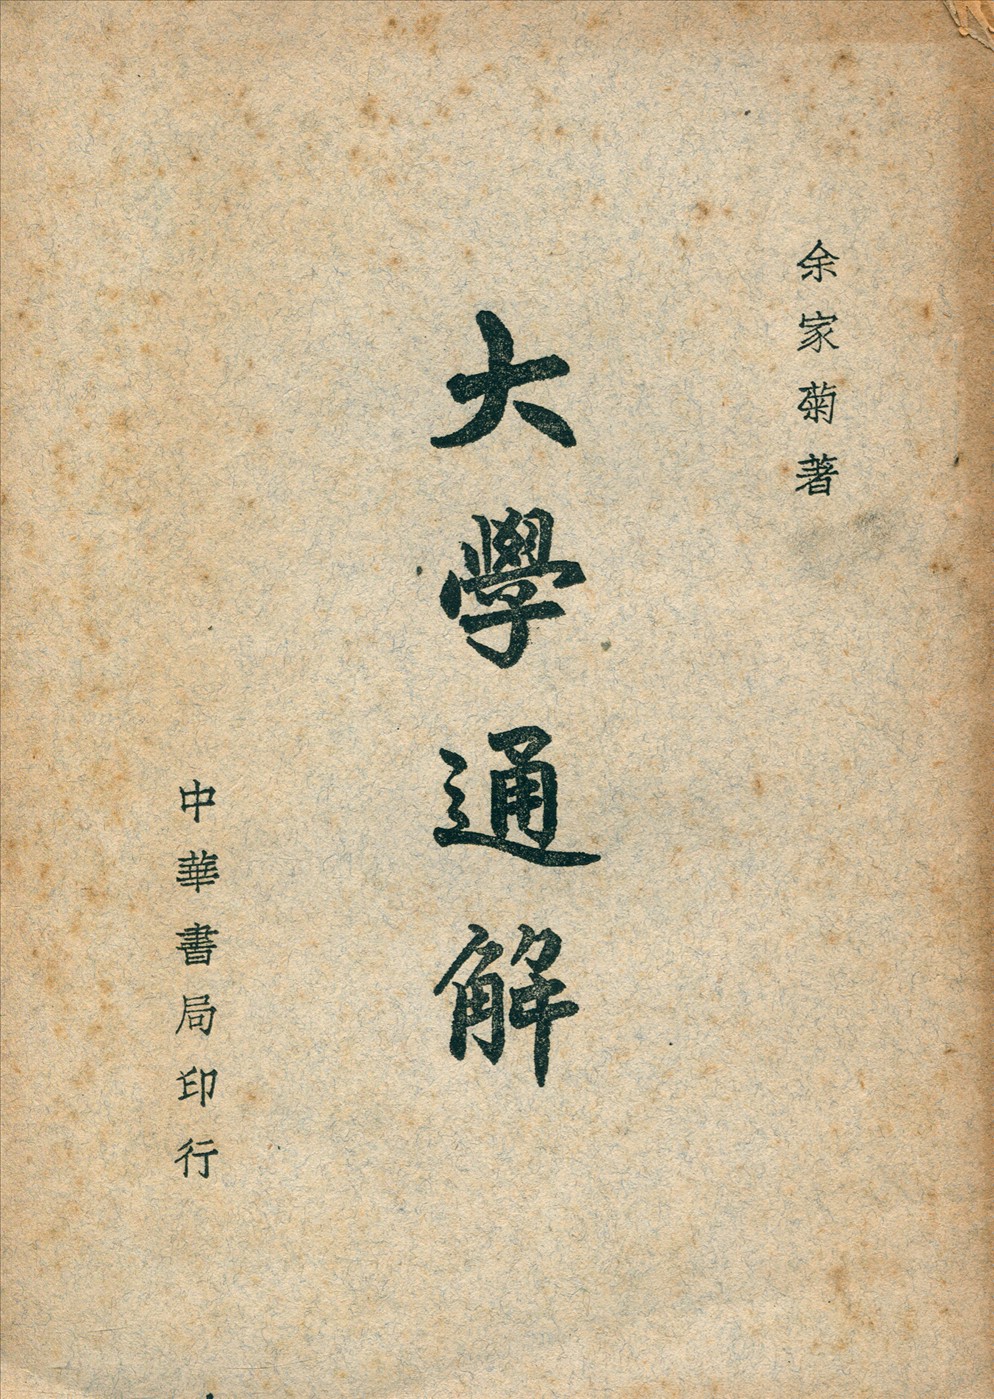 余家菊著
大學通解
中華書局印行